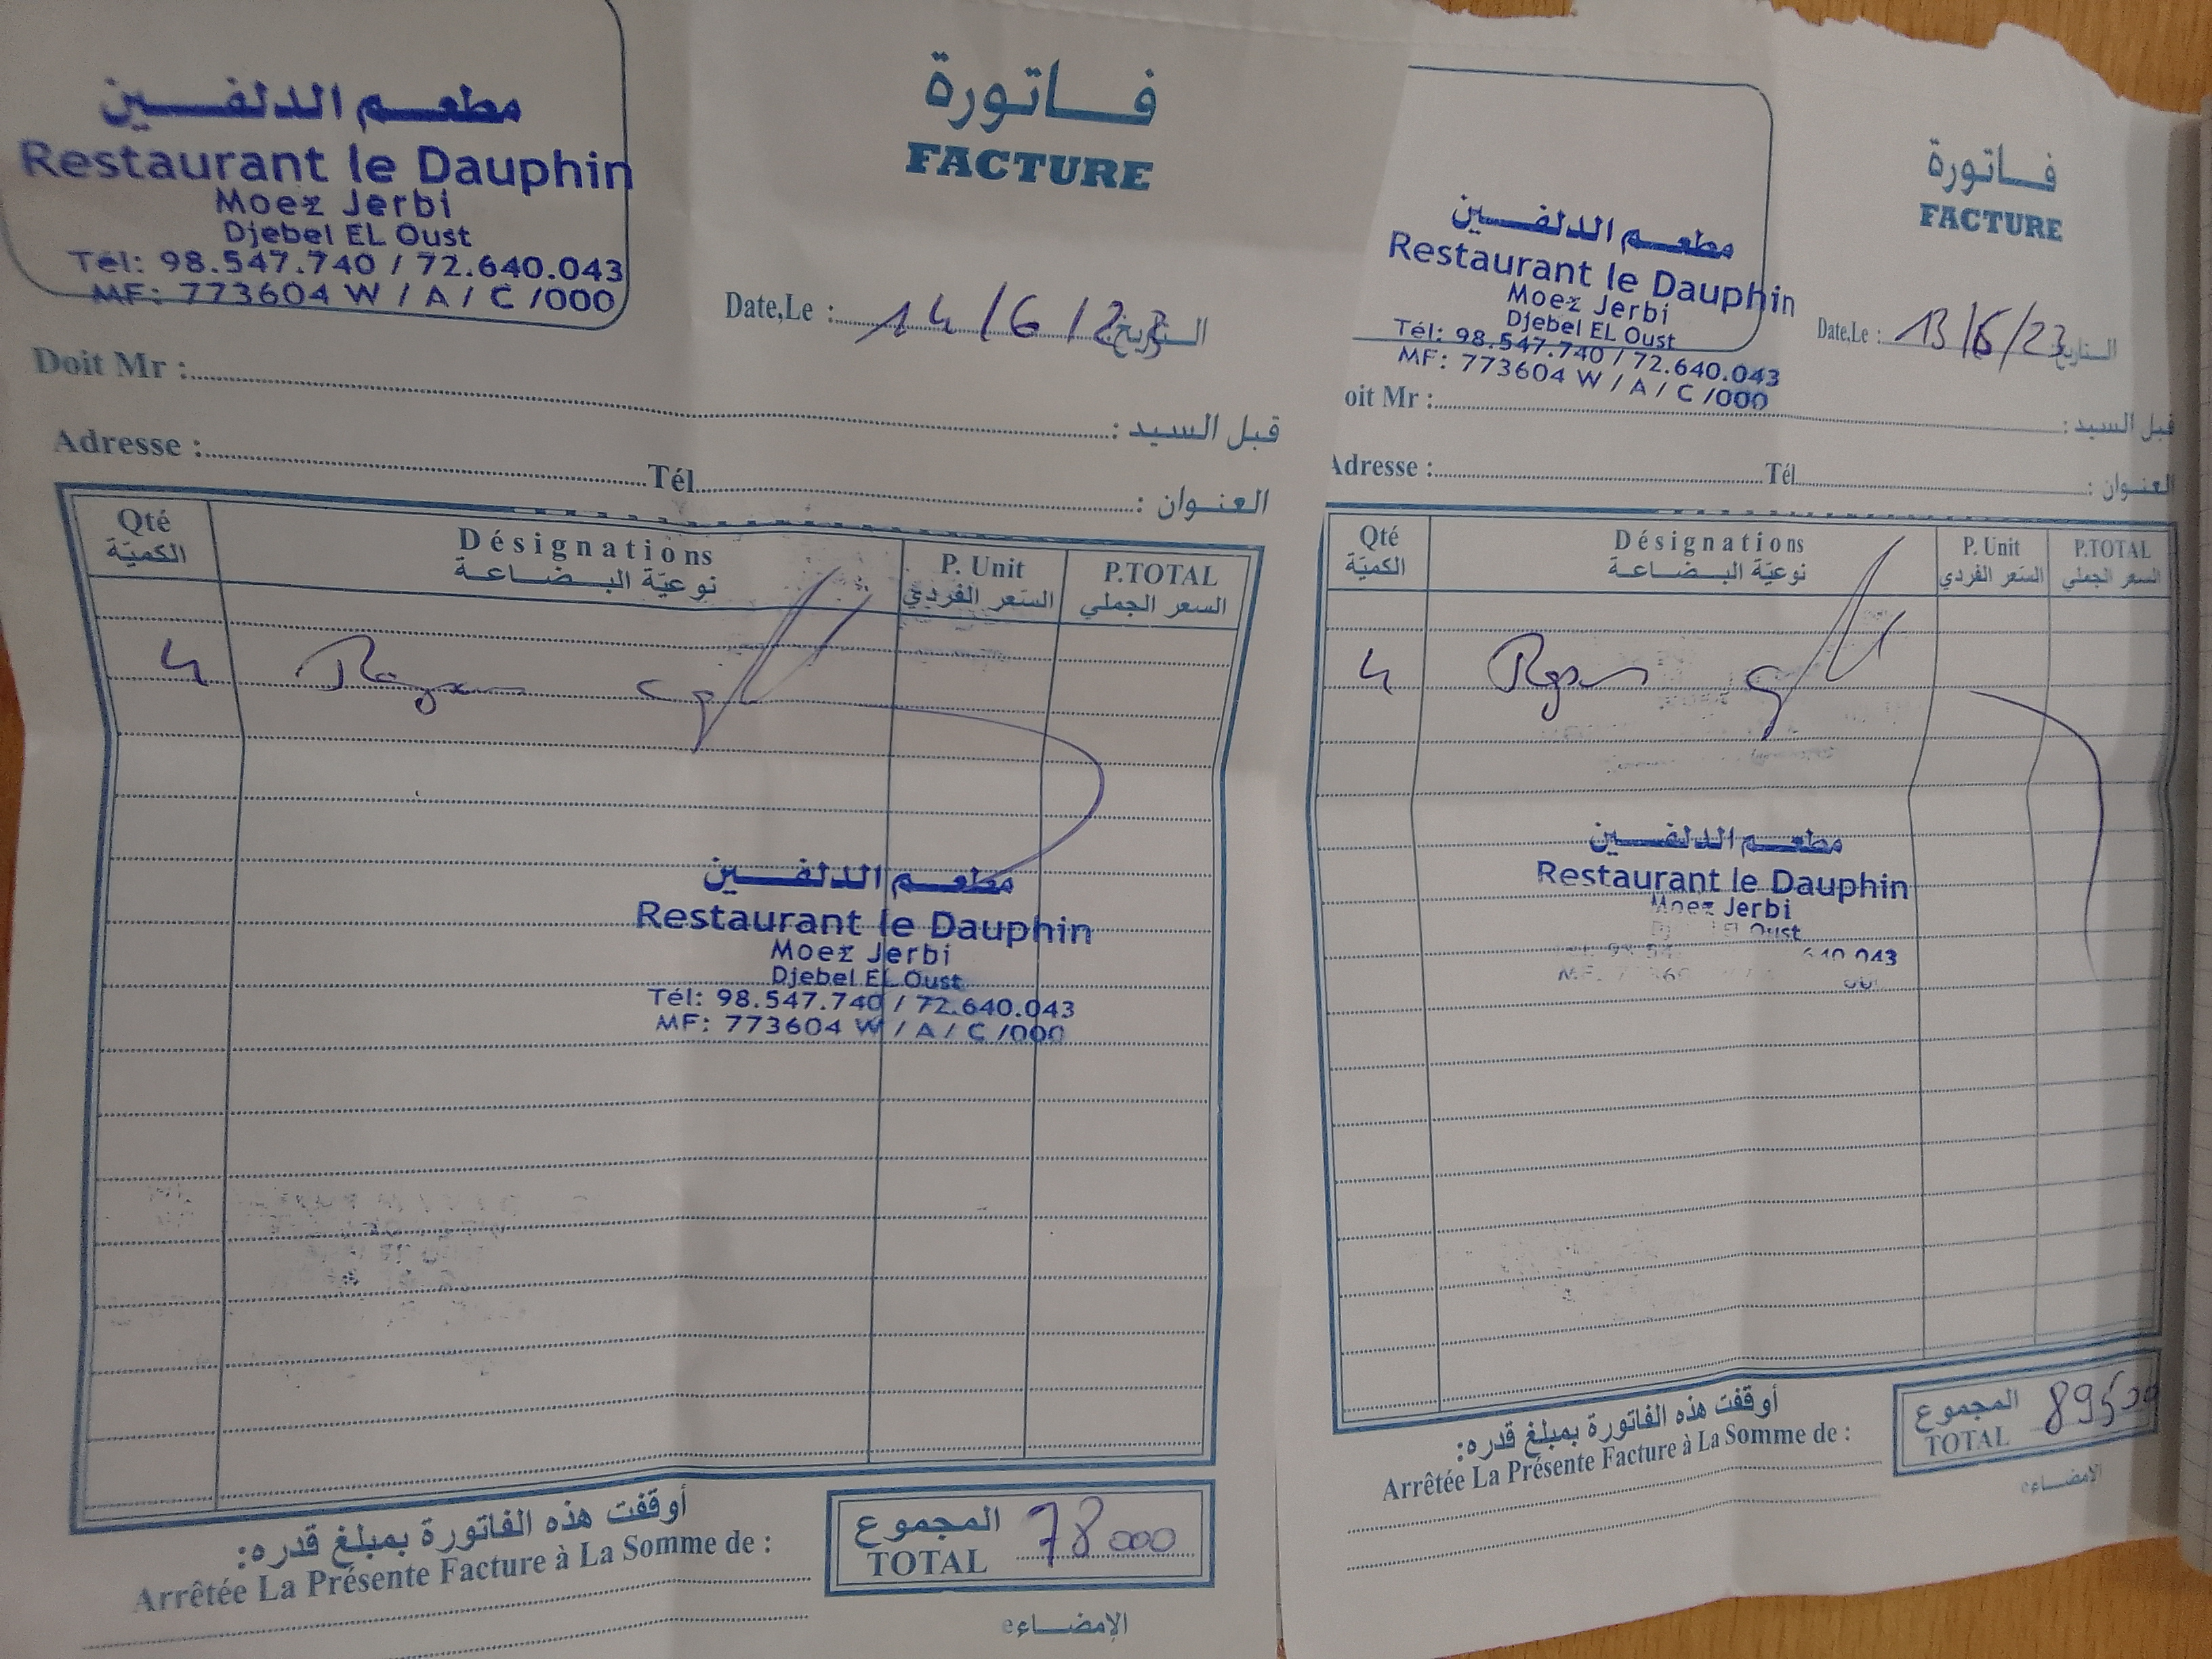 مطعم الدلفين
Restaurant le Dauphin
Moez Jerbi
Djebel EL Oust
Tél: 98.547.740 / 72.640.043
MF: 773604 W / A / C /000
فاتورة
FACTURE
Date,Le : 14/6/23 التاريخ
Doit Mr : قبل السيد :
Adresse : Tél العنوان :
Qté Désignations P. Unit P.TOTAL
الكميّة نوعيّة البضاعة السّعر الفردي السعر الجملي
4
مطعم الدلفين
Restaurant le Dauphin
Moez Jerbi
Djebel EL Oust
Tél: 98.547.740 / 72.640.043
MF: 773604 W / A / C /000
أوقفت هذه الفاتورة بمبلغ قدره:
Arrêtée La Présente Facture à La Somme de :
المجموع
TOTAL 78000
الإمضاء
مطعم الدلفين
Restaurant le Dauphin
Moez Jerbi
Djebel EL Oust
Tél: 98.547.740 / 72.640.043
MF: 773604 W / A / C /000
فاتورة
FACTURE
Date,Le : 13/6/23 التاريخ
oit Mr : قبل السيد :
Adresse : Tél العنوان :
Qté Désignations P. Unit P.TOTAL
الكميّة نوعيّة البضاعة السّعر الفردي السعر الجملي
4
مطعم الدلفين
Restaurant le Dauphin
Moez Jerbi
Oust
640.043
أوقفت هذه الفاتورة بمبلغ قدره:
Arrêtée La Présente Facture à La Somme de :
المجموع
TOTAL 89500
الامضاء